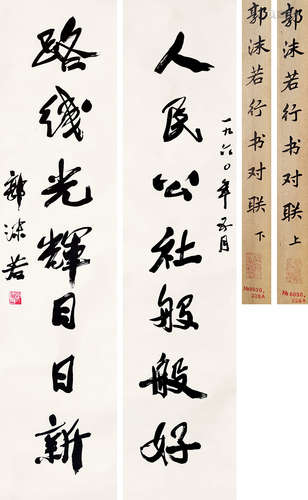 郭沫若行书对联 上
郭沫若行书对联 下
人民公社般般好
一九六〇年五月
路线光辉日日新
郭沫若